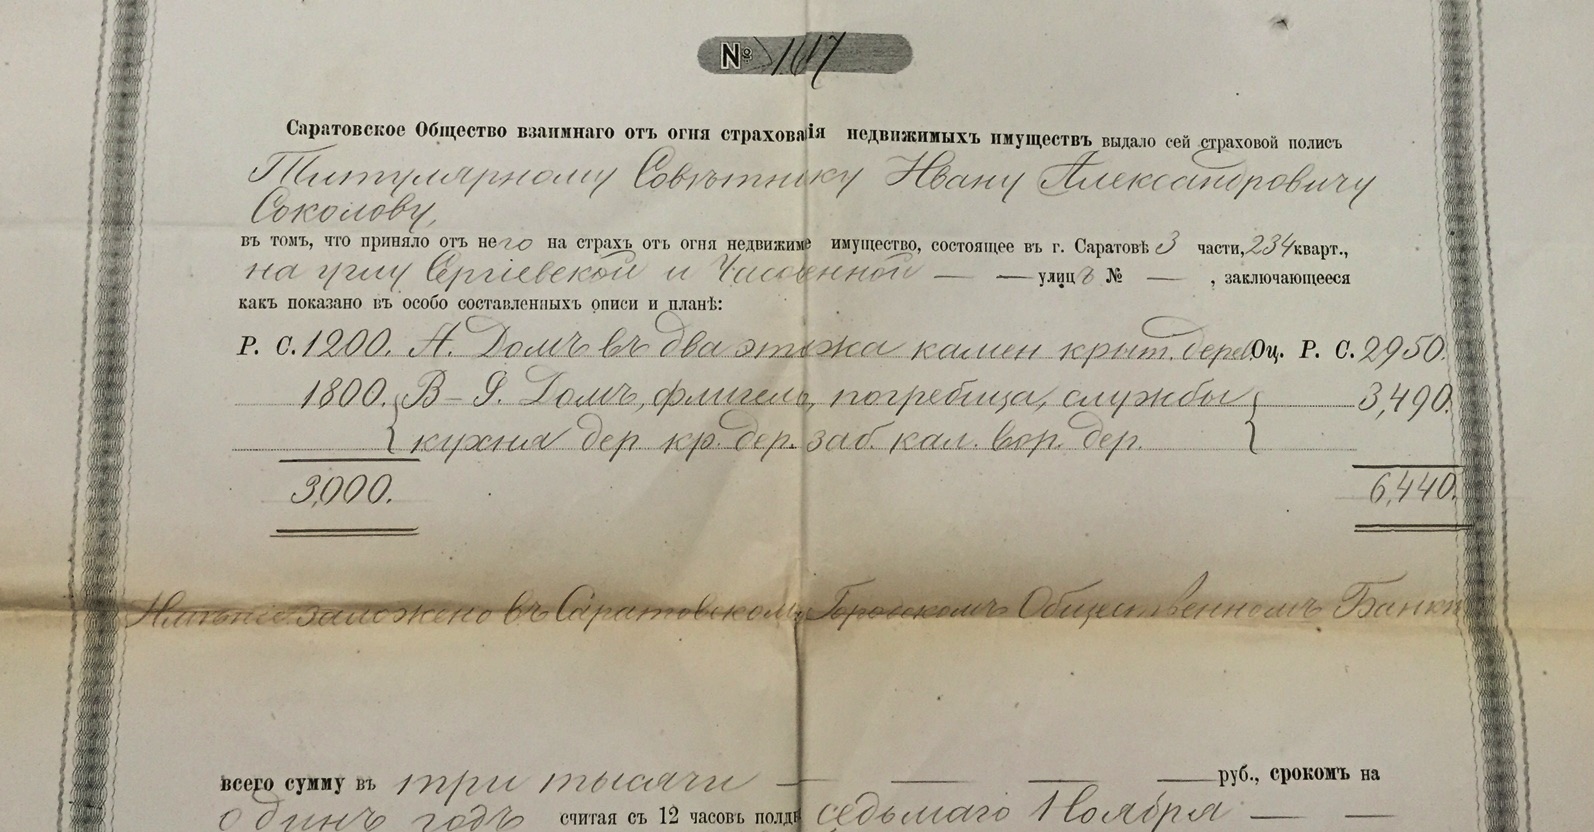 № 1617
Саратовское Общество взаимнаго отъ огня страхованія недвижимыхъ имуществъ выдало сей страховой полисъ
Титулярному Совѣтнику Ивану Александровичу
Соколову,
въ томъ, что приняло отъ него на страхъ отъ огня недвижимое имущество, состоящее въ г. Саратовѣ 3 части, 234 кварт.,
на углу Сергіевской и Часовенной — — улицъ № — , заключающееся
какъ показано въ особо составленныхъ описи и планѣ:
Р. С. 1200. А. Домъ въ два этажа камен крыт. дерев Оц. Р. С. 2950.
1800. В – Домъ, флигель, погребица, службы 3,490.
кухня дер. кр. дер. заб. кал. вор. дер.
3,000. 6,440.
Имѣніе заложено въ Саратовскомъ Городскомъ Общественномъ Банкѣ
всего сумму въ три тысячи — — — — руб., срокомъ на
одинъ годъ считая съ 12 часовъ полдня седьмаго Ноября — —